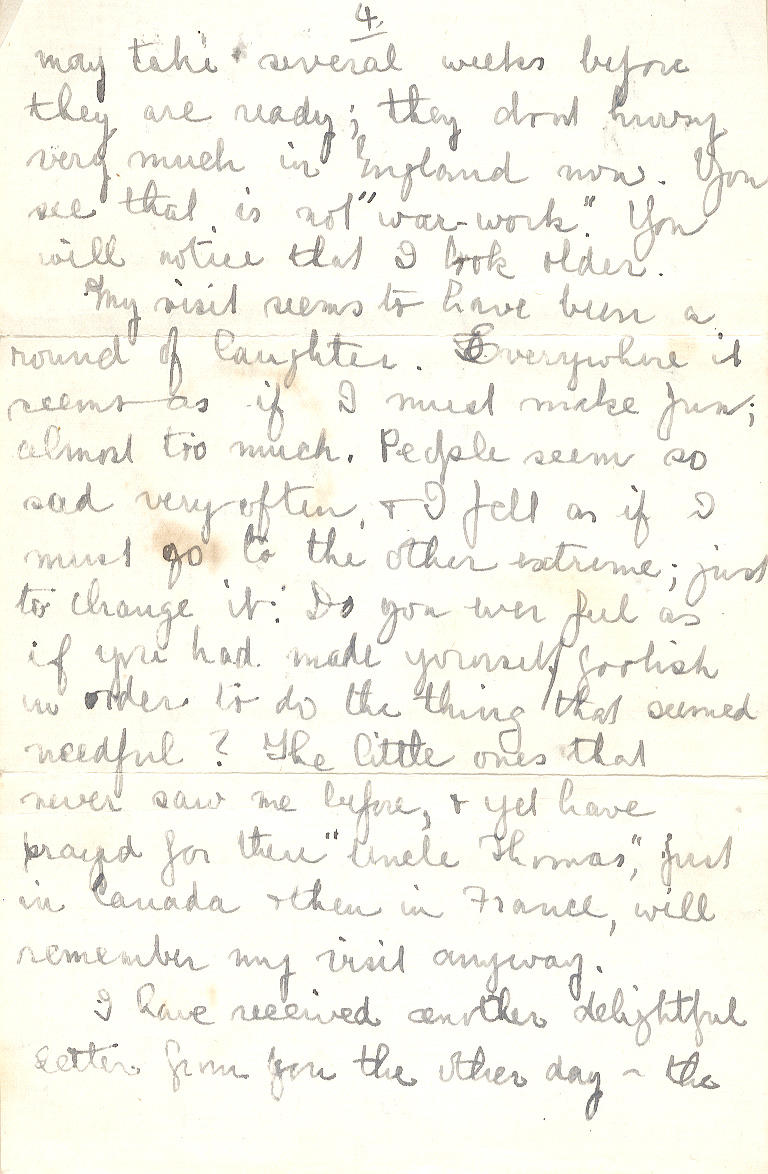 4.
may take several weeks before
they are ready; they dont hurry
very much in England now. You
see that is not "war-work". You
will notice that I look older.
My visit seems to have been a
round of laughter. Everywhere it
seems as if I must make fun;
almost too much. People seem so
sad very often, & I felt as if I
must go to the other extreme; just
to change it. Do you ever feel as
if you had made yourself foolish
in order to do the thing that seemed
needful? The little ones that
never saw me before, & yet have
prayed for their "Uncle Thomas", first
in Canada & then in France, will
remember my visit anyway.
I have received another delightful
letter from you the other day ~ the